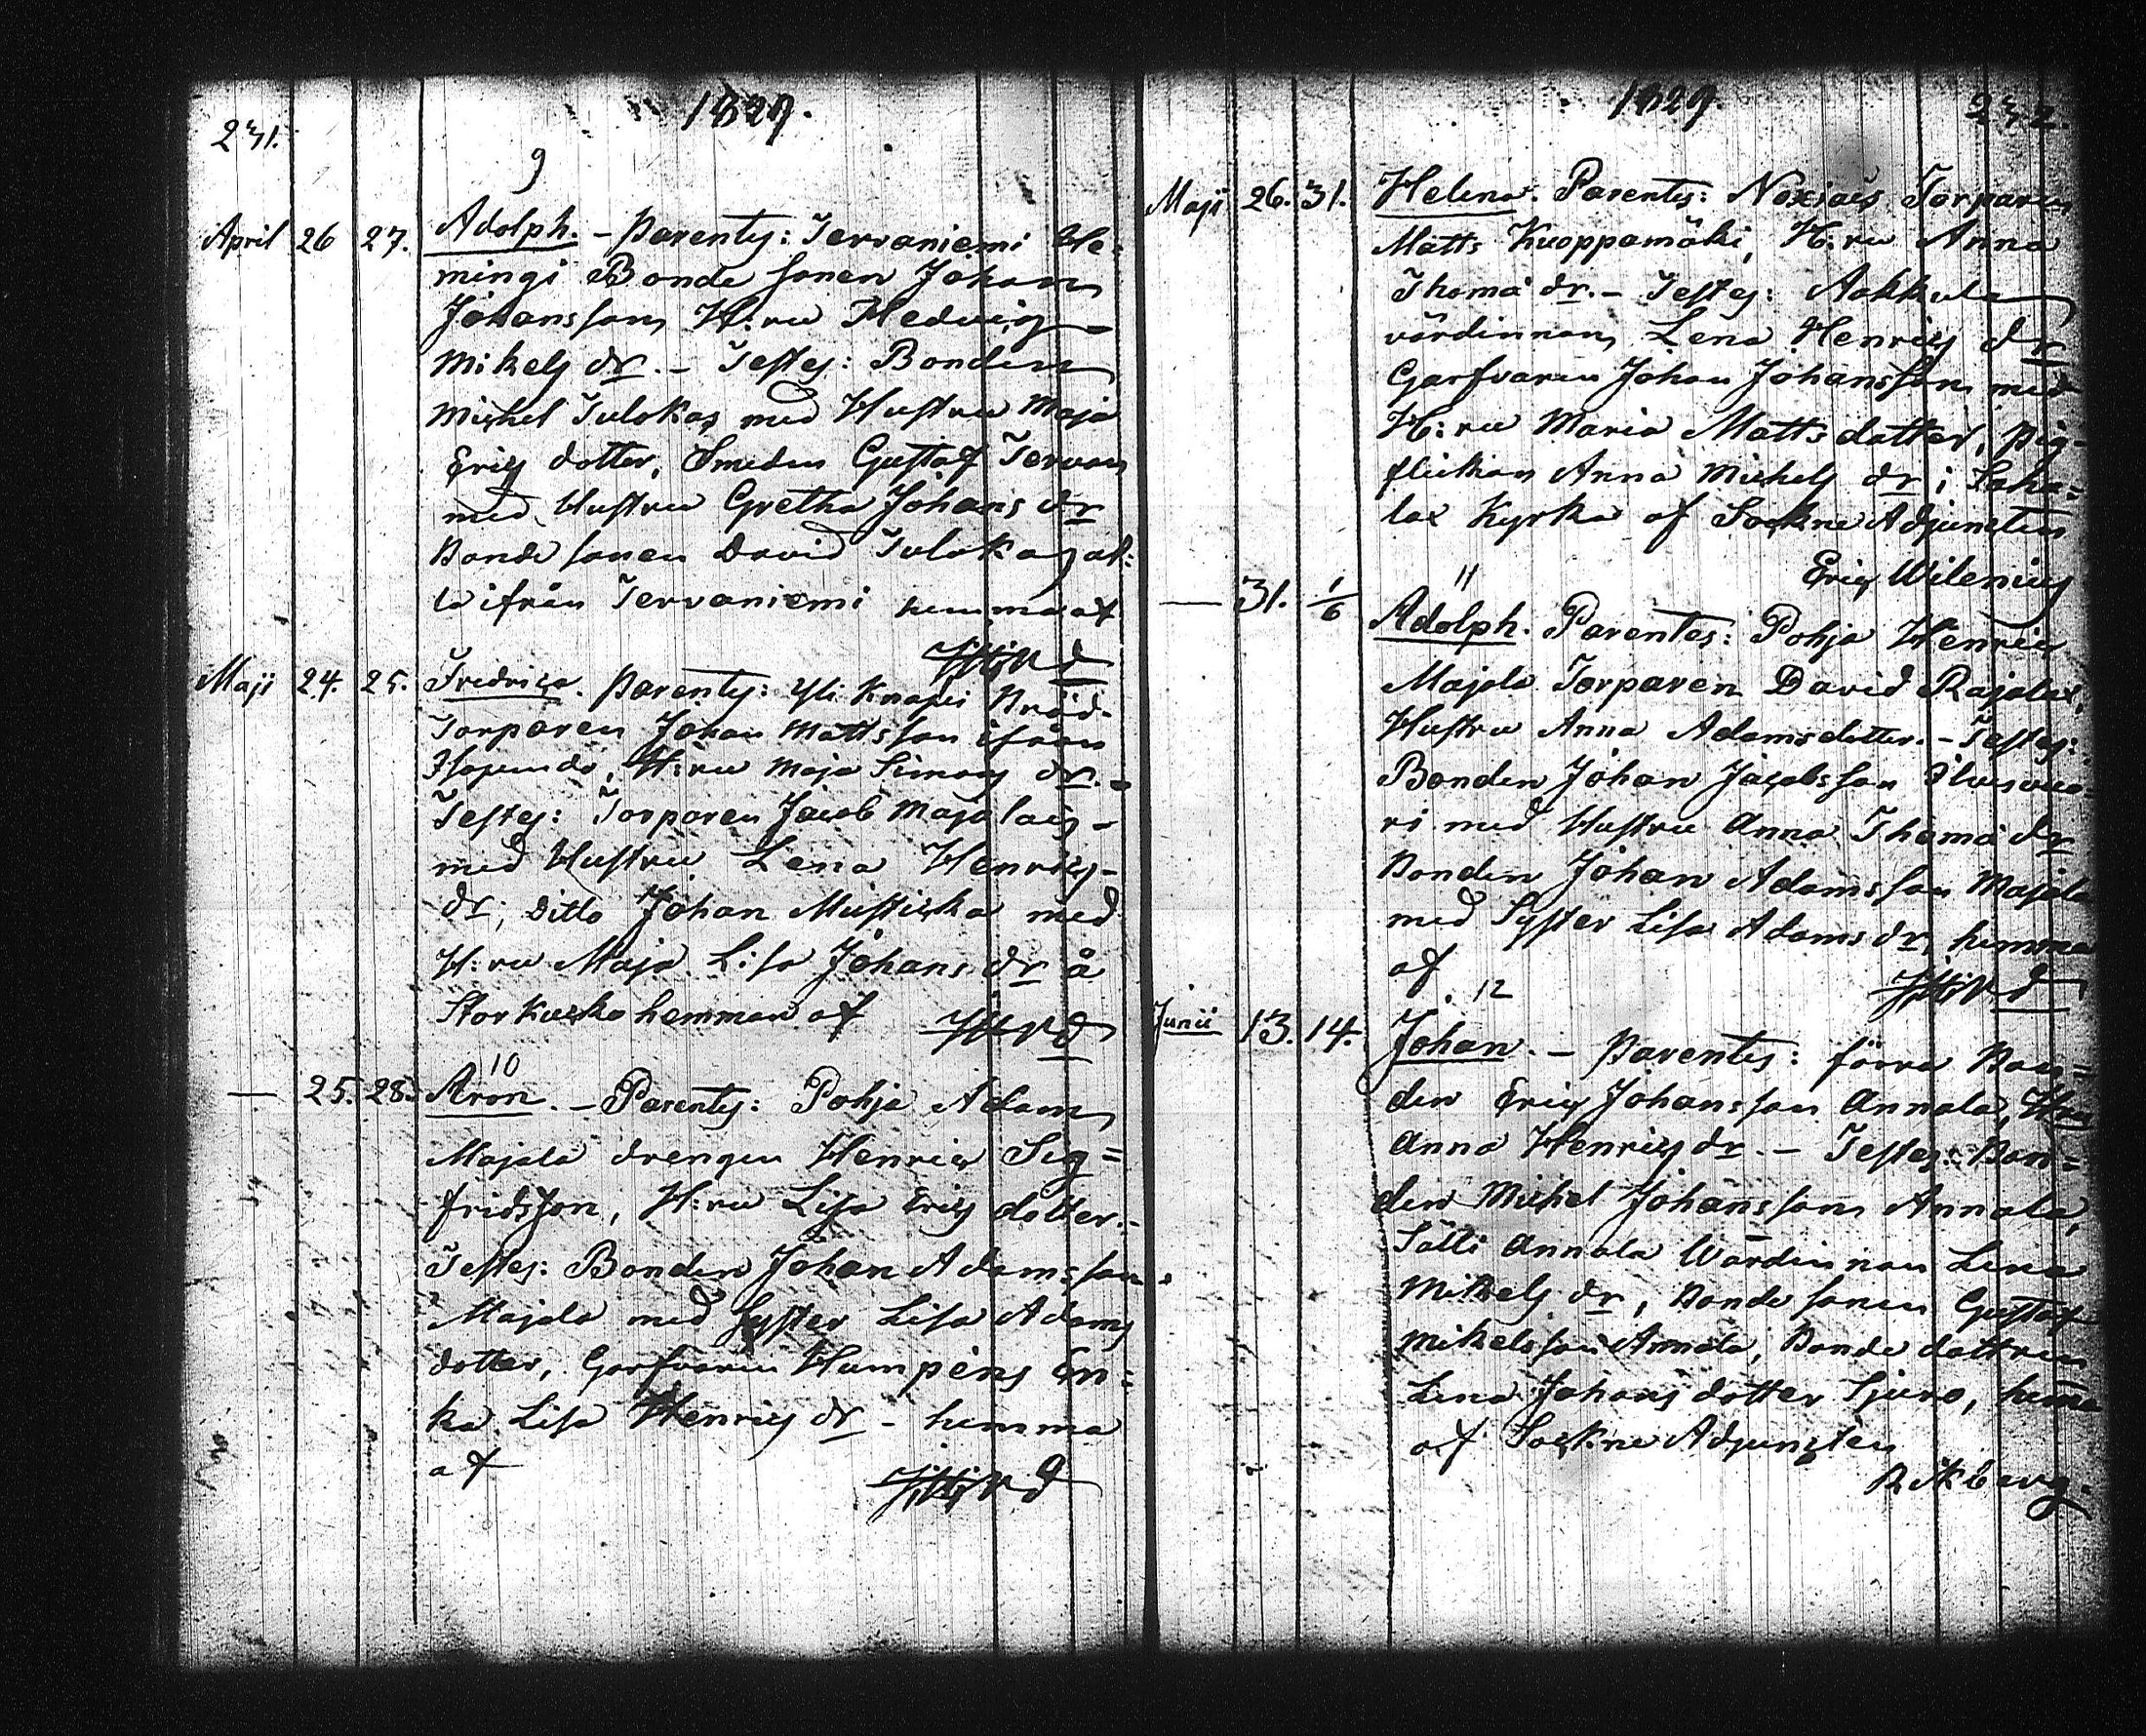 231.
1829.
9
April 26 27. Adolph. - Parentes: Tervaniemi He-
mingi Bonde sonen Johan
Johansson H:ru Hedvig
Mikels dr. - Testes: Bonden
Michel Tulokas med Hustru Maja
Erics dotter, Smeden Gustaf Tervan
med Hustru Gretha Johans dr
Bonde sonen David Tulokas al:
la ifrån Tervaniemi hemma af
Maji 24. 25. Fredrica. Parentes: Yli Knapi
Torparen Johan Mattsson ifrån
H:ru Maja Simons dr. -
Testes: Torparen Jacob Majalais
med Hustru Lena Henrics-
dr, Ditto Johan Musticka med
H:ru Maja Lisa Johans dr å
Storkusko hemman af
10
— 25. 28. Aron. - Parentes: Pohja Adam
Majala drengen Henric Sig=
fridsson, H:ru Lisa Erics dotter. -
Testes: Bonden Johan Adamsson
Majala med Syster Lisa Adams
dotter, Garfvaren Humpens En=
ka Lisa Henrics dr - hemma
af
1829
232.
Maji 26. 31. Helena. Parentes: Torparen
Matts Kuoppamäki, H:ru Anna
Thomä dr. - Testes: Aokkula
värdinnan Lena Henrics dr
Garfvaren Johan Johansson med
H:ru Maria Matts dotter, pig-
flickan Anna Michels dr i Laha=
lax Kyrka af Sockne Adjuncten
Eric Wilenius
11
— 31. 1/6 Adolph. Parentes: Pohja Henric
Majala Torparen David Rajalax,
Hustru Anna Adamsdotter. - Testes:
Bonden Johan Jacobsson Ilvesvuo-
ri med Hustru Anna Thomä dr
Bonden Johan Adamsson Majala
med Syster Lisa Adams dr, hemma
af
12
Junii 13. 14. Johan. - Parentes: förra Bon=
den Eric Johansson Annala, H:ru
Anna Henrics dr. - Testes: Bon=
den Michel Johansson Annala,
Sätti Annala Wärdinnan Lena
Mikels dr, Bonde sonen Gustaf
Mikelsson Annala, Bonde dottren
Lena Johans dotter Sjuro, hemma
af Sockne Adjuncten